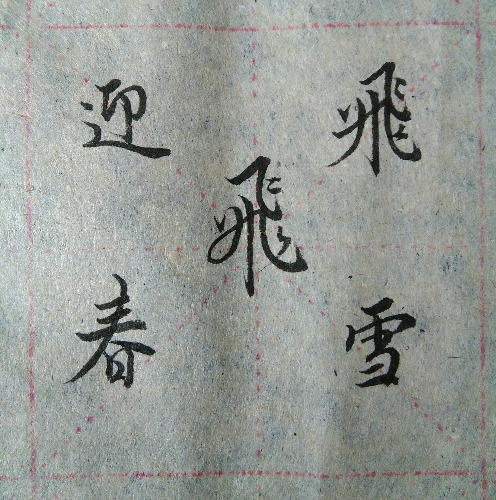 飛雪
飛
迎春